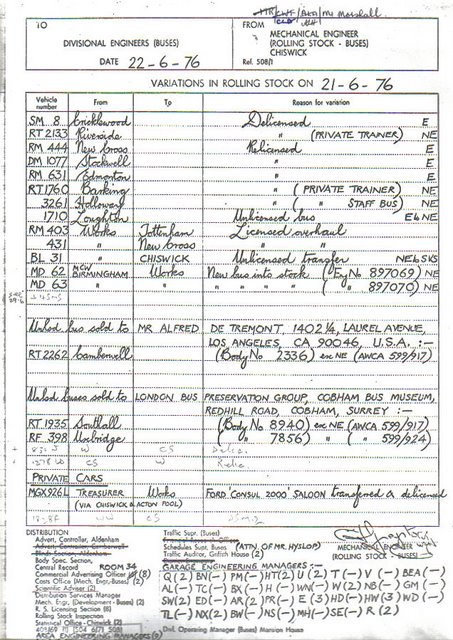 TO
DIVISIONAL ENGINEERS (BUSES)
DATE 22-6-76
FROM
MECHANICAL ENGINEER
(ROLLING STOCK - BUSES)
CHISWICK
Ref. 508/1
VARIATIONS IN ROLLING STOCK ON 21-6-76
Vehicle number From To Reason for variation
SM 8 Cricklewood Delicensed E
RT 2133 Riverside " (PRIVATE TRAINER) NE
RM 444 New Cross Relicensed E
DM 1077 Stockwell " E
RM 631 Edmonton " E
RT 1760 Barking " (PRIVATE TRAINER) NE
3261 Holloway " ( " STAFF BUS) NE
1710 Loughton Unlicensed bus E to NE
RM 403 Works Tottenham Licensed overhaul
431 " New Cross " "
BL 31 " CHISWICK Unlicensed transfer NE to SKS
MD 62 MCW BIRMINGHAM Works New bus into stock (Eng No 897069) NE
MD 63 " " " " " " ( " 897070) NE
Unlicd bus sold to MR ALFRED DE TREMONT. 1402¼, LAUREL AVENUE,
LOS ANGELES, CA 90046, U.S.A. :-
RT 2262 Camberwell (Body No 2336) exc NE (AWCA 599/917)
Unlicd buses sold to LONDON BUS PRESERVATION GROUP, COBHAM BUS MUSEUM,
REDHILL ROAD, COBHAM, SURREY :-
RT 1935 Southall (Body No 8940) exc NE (AWCA 599/917)
RF 398 Uxbridge ( " 7856) " " ( " 599/924)
PRIVATE CARS
MGX926L TREASURER Works FORD 'CONSUL 2000' SALOON transferred & delicensed
(VIA CHISWICK & ACTON POOL)
DISTRIBUTION
Advert. Controller, Aldenham
Advert. Controller, Camberwell
Body Spec. Section,
Central Record ROOM 34
Commercial Advertising Officer (8)
Costs Office Mech. Engr. (Buses) (2)
Scientific Adviser (2)
Distribution Services Manager
Mech. Engr. (Development - Buses) (2)
R. S. Licensing Section (8)
Rolling Stock Inspection
Stationery Office - Chiswick (2)
AREA ENGINEERING MANAGERS (9)
Traffic Supt. (Buses)
Schedules Supt. Buses (ATTN. OF MR. HYSLOP)
Traffic Auditor, Griffith House (2)
MECHANICAL ENGINEER
(ROLLING STOCK - BUSES)
GARAGE ENGINEERING MANAGERS :-
Q (2) BN(-) PM(-) HT(2) U(2) T(-) V(-) BEA(-)
AL(-) TC(-) BX(-) H(-) WN(-) W(2) NB(-) GM(-)
SW(2) ED(-) AR(2) PR(-) E(3) HD(-) HW(3) WD(-)
TL(-) NX(2) BW(-) NS(-) MH(-) SE(-) R(2)
Divl. Operating Manager (Buses) Mansion House